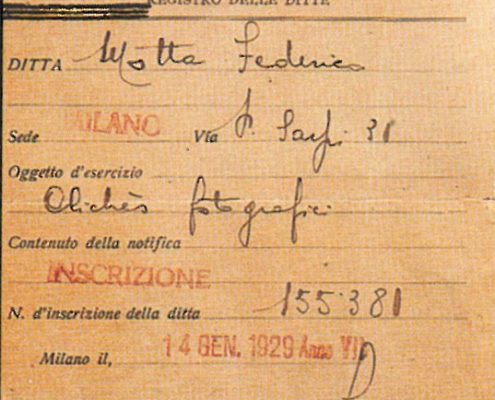 REGISTRO DELLE DITTE
DITTA Motta Federico
Sede MILANO Via P. Sarpi 31
Oggetto d'esercizio
Clichès fotografici
Contenuto della notifica
INSCRIZIONE
N. d'inscrizione della ditta 155381
Milano il, 14 GEN. 1929 Anno VII